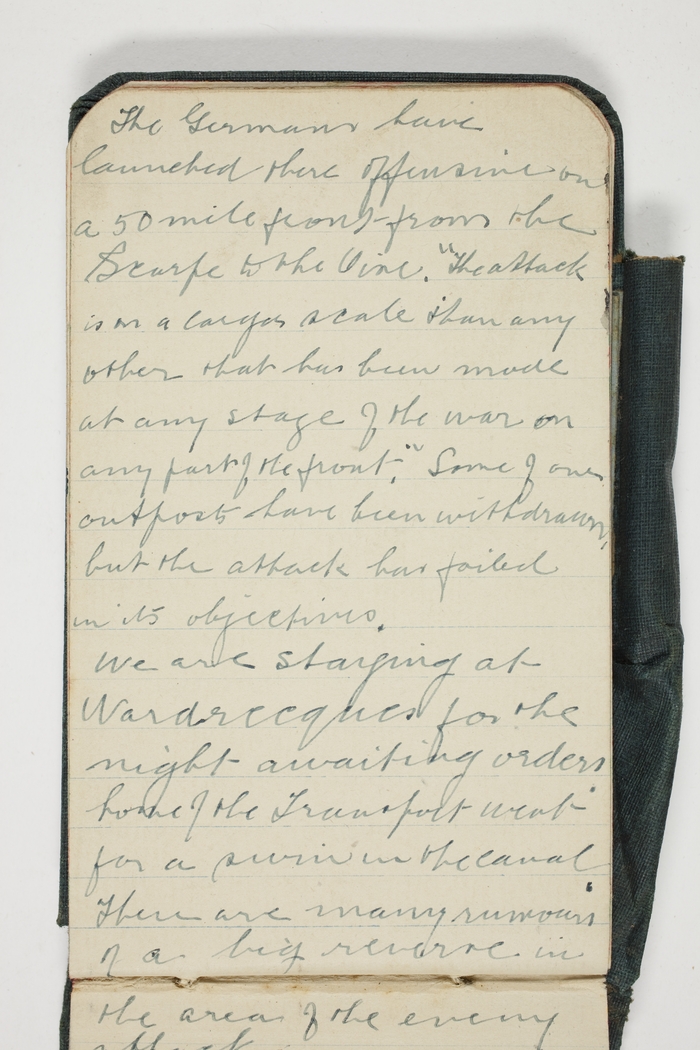 The Germans have
launched there offensive on
a 50 mile front from the
Scarfe to the Oise. "The attack
is on a larger scale than any
other that has been made
at any stage of the war on
any part of the front." Some of our
outposts have been withdrawn,
but the attack has failed
in its objectives.
We are staying at
Wardrecques for the
night awaiting orders.
Some of the Transport went
for a swim in the canal.
There are many rumours
of a big reverse in
the area of the enemy
attack